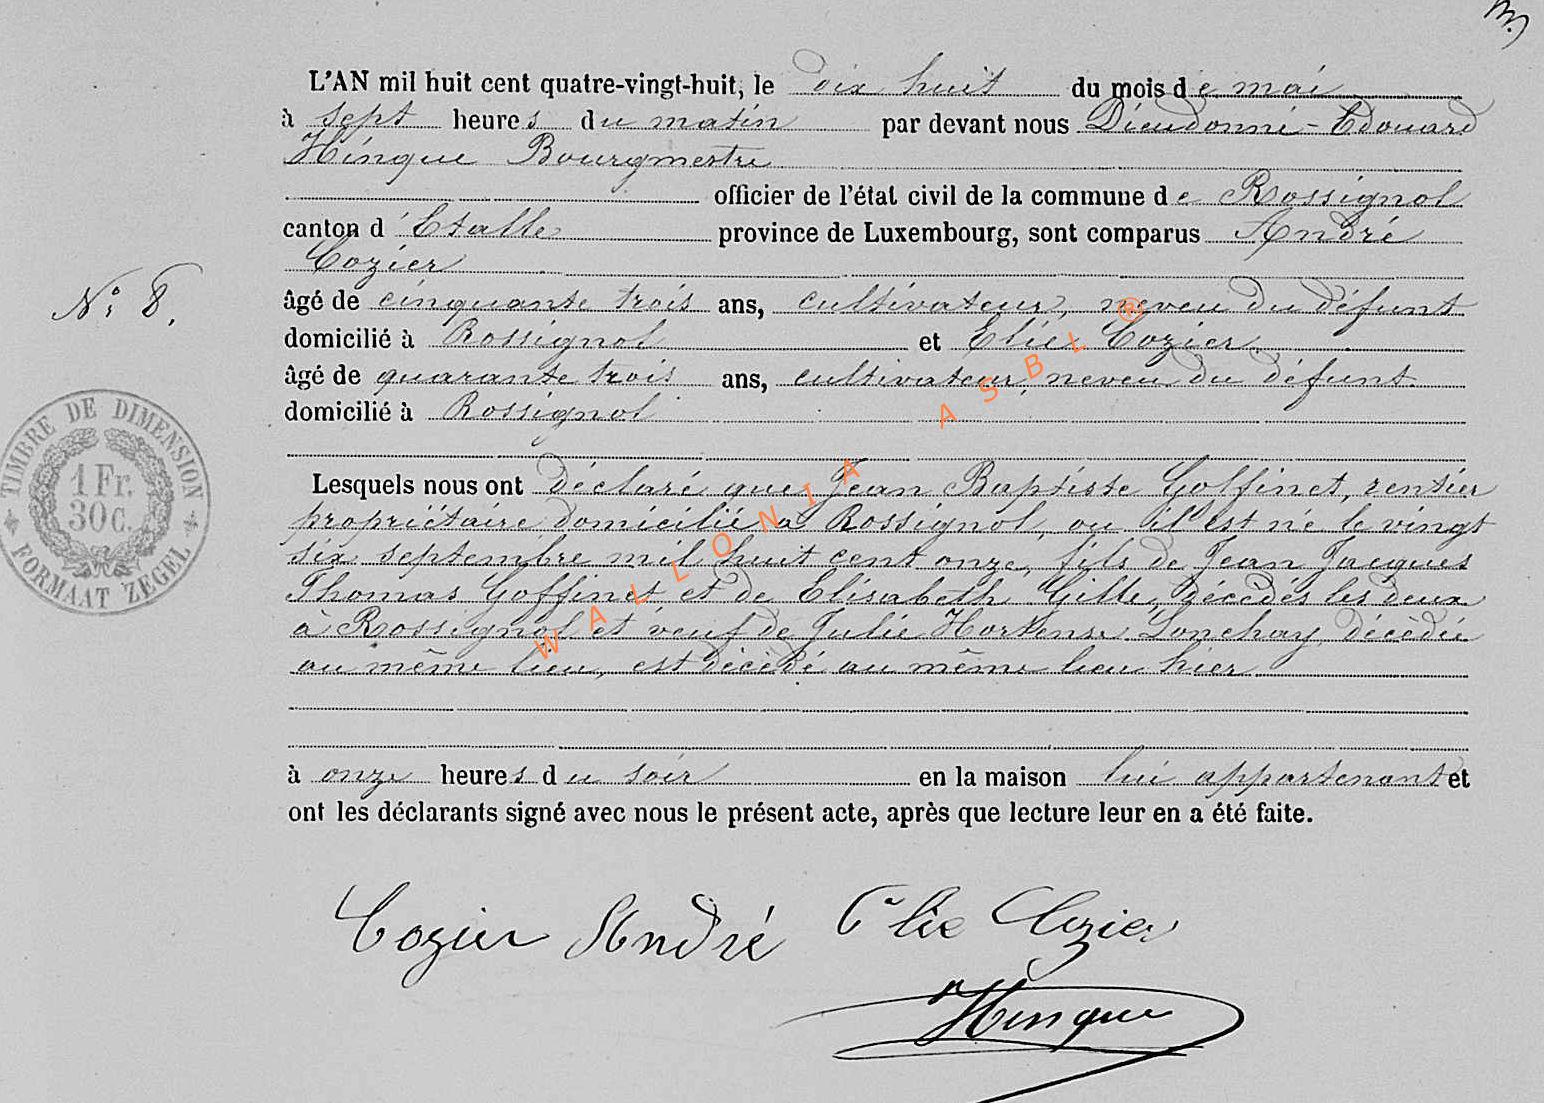 L'AN mil huit cent quatre-vingt-huit, le dix huit du mois de mai
à sept heures du matin par devant nous Dieudonné-Edouard
Hinque Bourgmestre
officier de l'état civil de la commune de Rossignol
canton d'Etalle province de Luxembourg, sont comparus André
Cozier
âgé de cinquante trois ans, cultivateur, neveu du défunt
domicilié à Rossignol et Elie Cozier
âgé de quarante trois ans, cultivateur, neveu du défunt
domicilié à Rossignol
N° 8.
TIMBRE DE DIMENSION
1 Fr.
30 C.
FORMAAT ZEGEL
Lesquels nous ont déclaré que Jean Baptiste Goffinet, rentier
propriétaire domicilié à Rossignol, ou il est né le vingt
six septembre mil huit cent onze, fils de Jean Jacques
Thomas Goffinet et de Elisabeth Gille, décédés les deux
à Rossignol et veuf de Julie Hortense Lonchay décédée
au même lieu, est décédé au même lieu hier
à onze heures du soir en la maison lui appartenant et
ont les déclarants signé avec nous le présent acte, après que lecture leur en a été faite.
Cozier André Elie Cozier
Hinque
WALLONIA ASBL ®